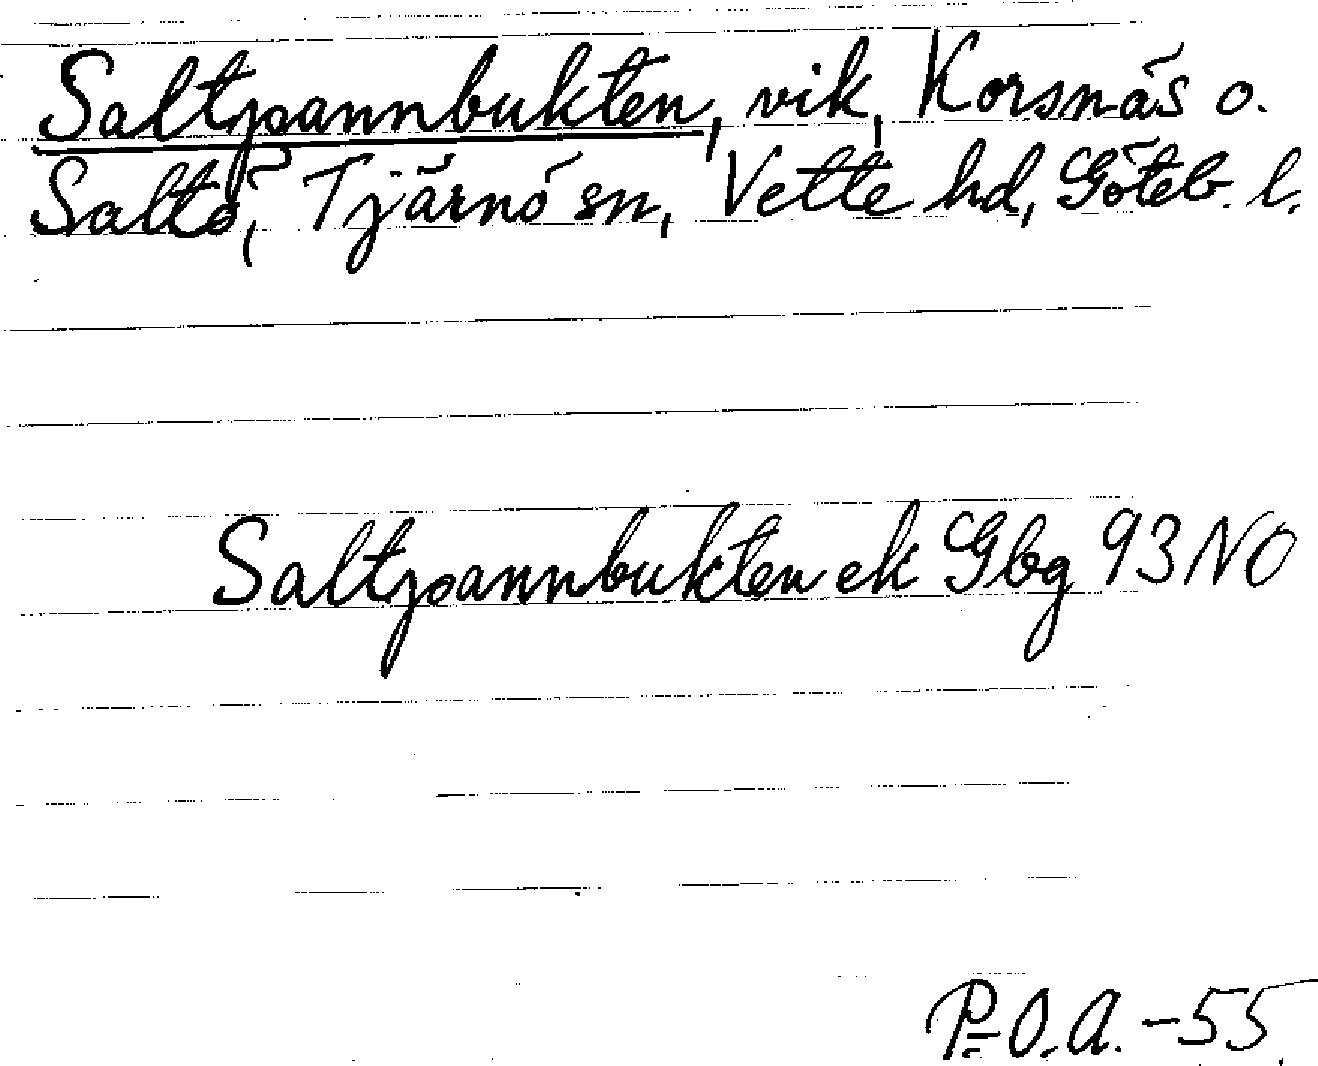 Saltpannbukten, vik, Korsnäs o.
Saltö, Tjärnö sn, Vette hd, Göteb. l.
Saltpannbukten ek Gbg 93 NO
P.O.A. -55